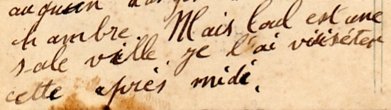 chambre. Mais Toul est une
sale ville je l'ai visiséter
cette après midi.